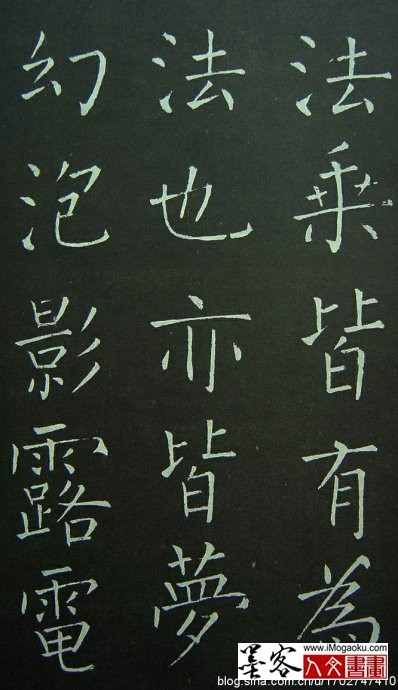 法乘皆有為
法也亦皆夢
幻泡影露電
墨客
www.iMogaoku.com
人文書畫
blog.sina.com.cn/u/1702747410